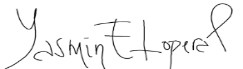 Yasmin E Lopera